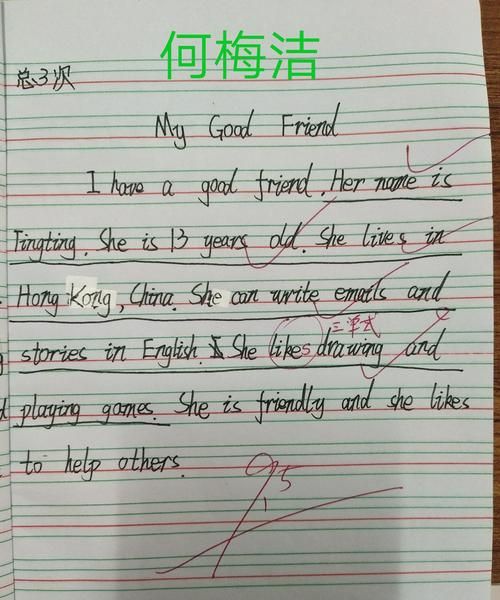 何梅洁
总3次
My Good Friend
I have a good friend. Her name is
Tingting. She is 13 years old. She lives in
Hong Kong, China. She can write emails and
三单式
stories in English. She likes drawing and
playing games. She is friendly and she likes
to help others.
95